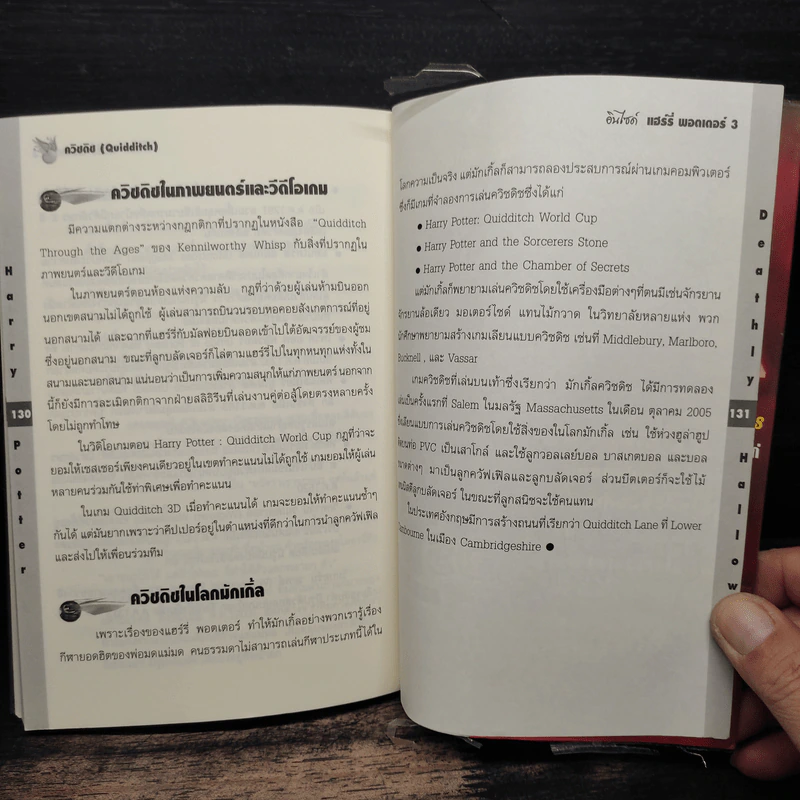 ควิชดิช (Quidditch)
ควิชดิชในภาพยนตร์และวีดีโอเกม
มีความแตกต่างระหว่างกฎกติกาที่ปรากฏในหนังสือ "Quidditch
Through the Ages" ของ Kennilworthy Whisp กับสิ่งที่ปรากฏใน
ภาพยนตร์และวีดีโอเกม
ในภาพยนตร์ตอนห้องแห่งความลับ กฎที่ว่าด้วยผู้เล่นห้ามบินออก
นอกเขตสนามไม่ได้ถูกใช้ ผู้เล่นสามารถบินวนรอบหอคอยสังเกตการณ์ที่อยู่
นอกสนามได้ และฉากที่แฮร์รี่กับมัลฟอยบินลอดเข้าไปใต้อัฒจรรย์ของผู้ชม
ซึ่งอยู่นอกสนาม ขณะที่ลูกบลัดเจอร์ก็ไล่ตามแฮร์รี่ไปในทุกหนทุกแห่งทั้งใน
สนามและนอกสนาม แน่นอนว่าเป็นการเพิ่มความสนุกให้แก่ภาพยนตร์ นอกจาก
นี้ก็ยังมีการละเมิดกติกาจากฝ่ายสลิธิรีนที่เล่นงานคู่ต่อสู้โดยตรงหลายครั้ง
โดยไม่ถูกทำโทษ
ในวิดีโอเกมตอน Harry Potter : Quidditch World Cup กฎที่ว่าจะ
ยอมให้เชสเซอร์เพียงคนเดียวอยู่ในเขตทำคะแนนไม่ได้ถูกใช้ เกมยอมให้ผู้เล่น
หลายคนร่วมกันใช้ท่าพิเศษเพื่อทำคะแนน
ในเกม Quidditch 3D เมื่อทำคะแนนได้ เกมจะยอมให้ทำคะแนนซ้ำๆ
กันได้ แต่มันยากเพราะว่าคีปเปอร์อยู่ในตำแหน่งที่ดีกว่าในการนำลูกควัฟเฟิล
และส่งไปให้เพื่อนร่วมทีม
ควิชดิชในโลกมักเกิ้ล
เพราะเรื่องของแฮร์รี่ พอตเตอร์ ทำให้มักเกิ้ลอย่างพวกเรารู้เรื่อง
กีฬายอดฮิตของพ่อมดแม่มด คนธรรมดาไม่สามารถเล่นกีฬาประเภทนี้ได้ใน
Harry
130
Potter
อินไซด์ แฮร์รี่ พอตเตอร์ 3
โลกความเป็นจริง แต่มักเกิ้ลก็สามารถลองประสบการณ์ผ่านเกมคอมพิวเตอร์
ซึ่งก็มีเกมที่จำลองการเล่นควิชดิชซึ่งได้แก่
● Harry Potter: Quidditch World Cup
● Harry Potter and the Sorcerers Stone
● Harry Potter and the Chamber of Secrets
แต่มักเกิ้ลก็พยายามเล่นควิชดิชโดยใช้เครื่องมือต่างๆที่ตนมีเช่นจักรยาน
จักรยานล้อเดียว มอเตอร์ไซด์ แทนไม้กวาด ในวิทยาลัยหลายแห่ง พวก
นักศึกษาพยายามสร้างเกมเลียนแบบควิชดิช เช่นที่ Middlebury, Marlboro,
Bucknell , และ Vassar
เกมควิชดิชที่เล่นบนเท้าซึ่งเรียกว่า มักเกิ้ลควิชดิช ได้มีการทดลอง
เล่นเป็นครั้งแรกที่ Salem ในมลรัฐ Massachusetts ในเดือน ตุลาคม 2005
ซึ่งเลียนแบบการเล่นควิชดิชโดยใช้สิ่งของในโลกมักเกิ้ล เช่น ใช้ห่วงฮูล่าฮูป
ท่อ PVC เป็นเสาโกล์ และใช้ลูกวอลเลย์บอล บาสเกตบอล และบอล
ขนาดต่างๆ มาเป็นลูกควัฟเฟิลและลูกบลัดเจอร์ ส่วนบีตเตอร์ก็จะใช้ไม้
ลูกบลัดเจอร์ ในขณะที่ลูกสนิชจะใช้คนแทน
ในประเทศอังกฤษมีการสร้างถนนที่เรียกว่า Quidditch Lane ที่ Lower
Cambourne ในเมือง Cambridgeshire ●
Deathly
131
Hallow